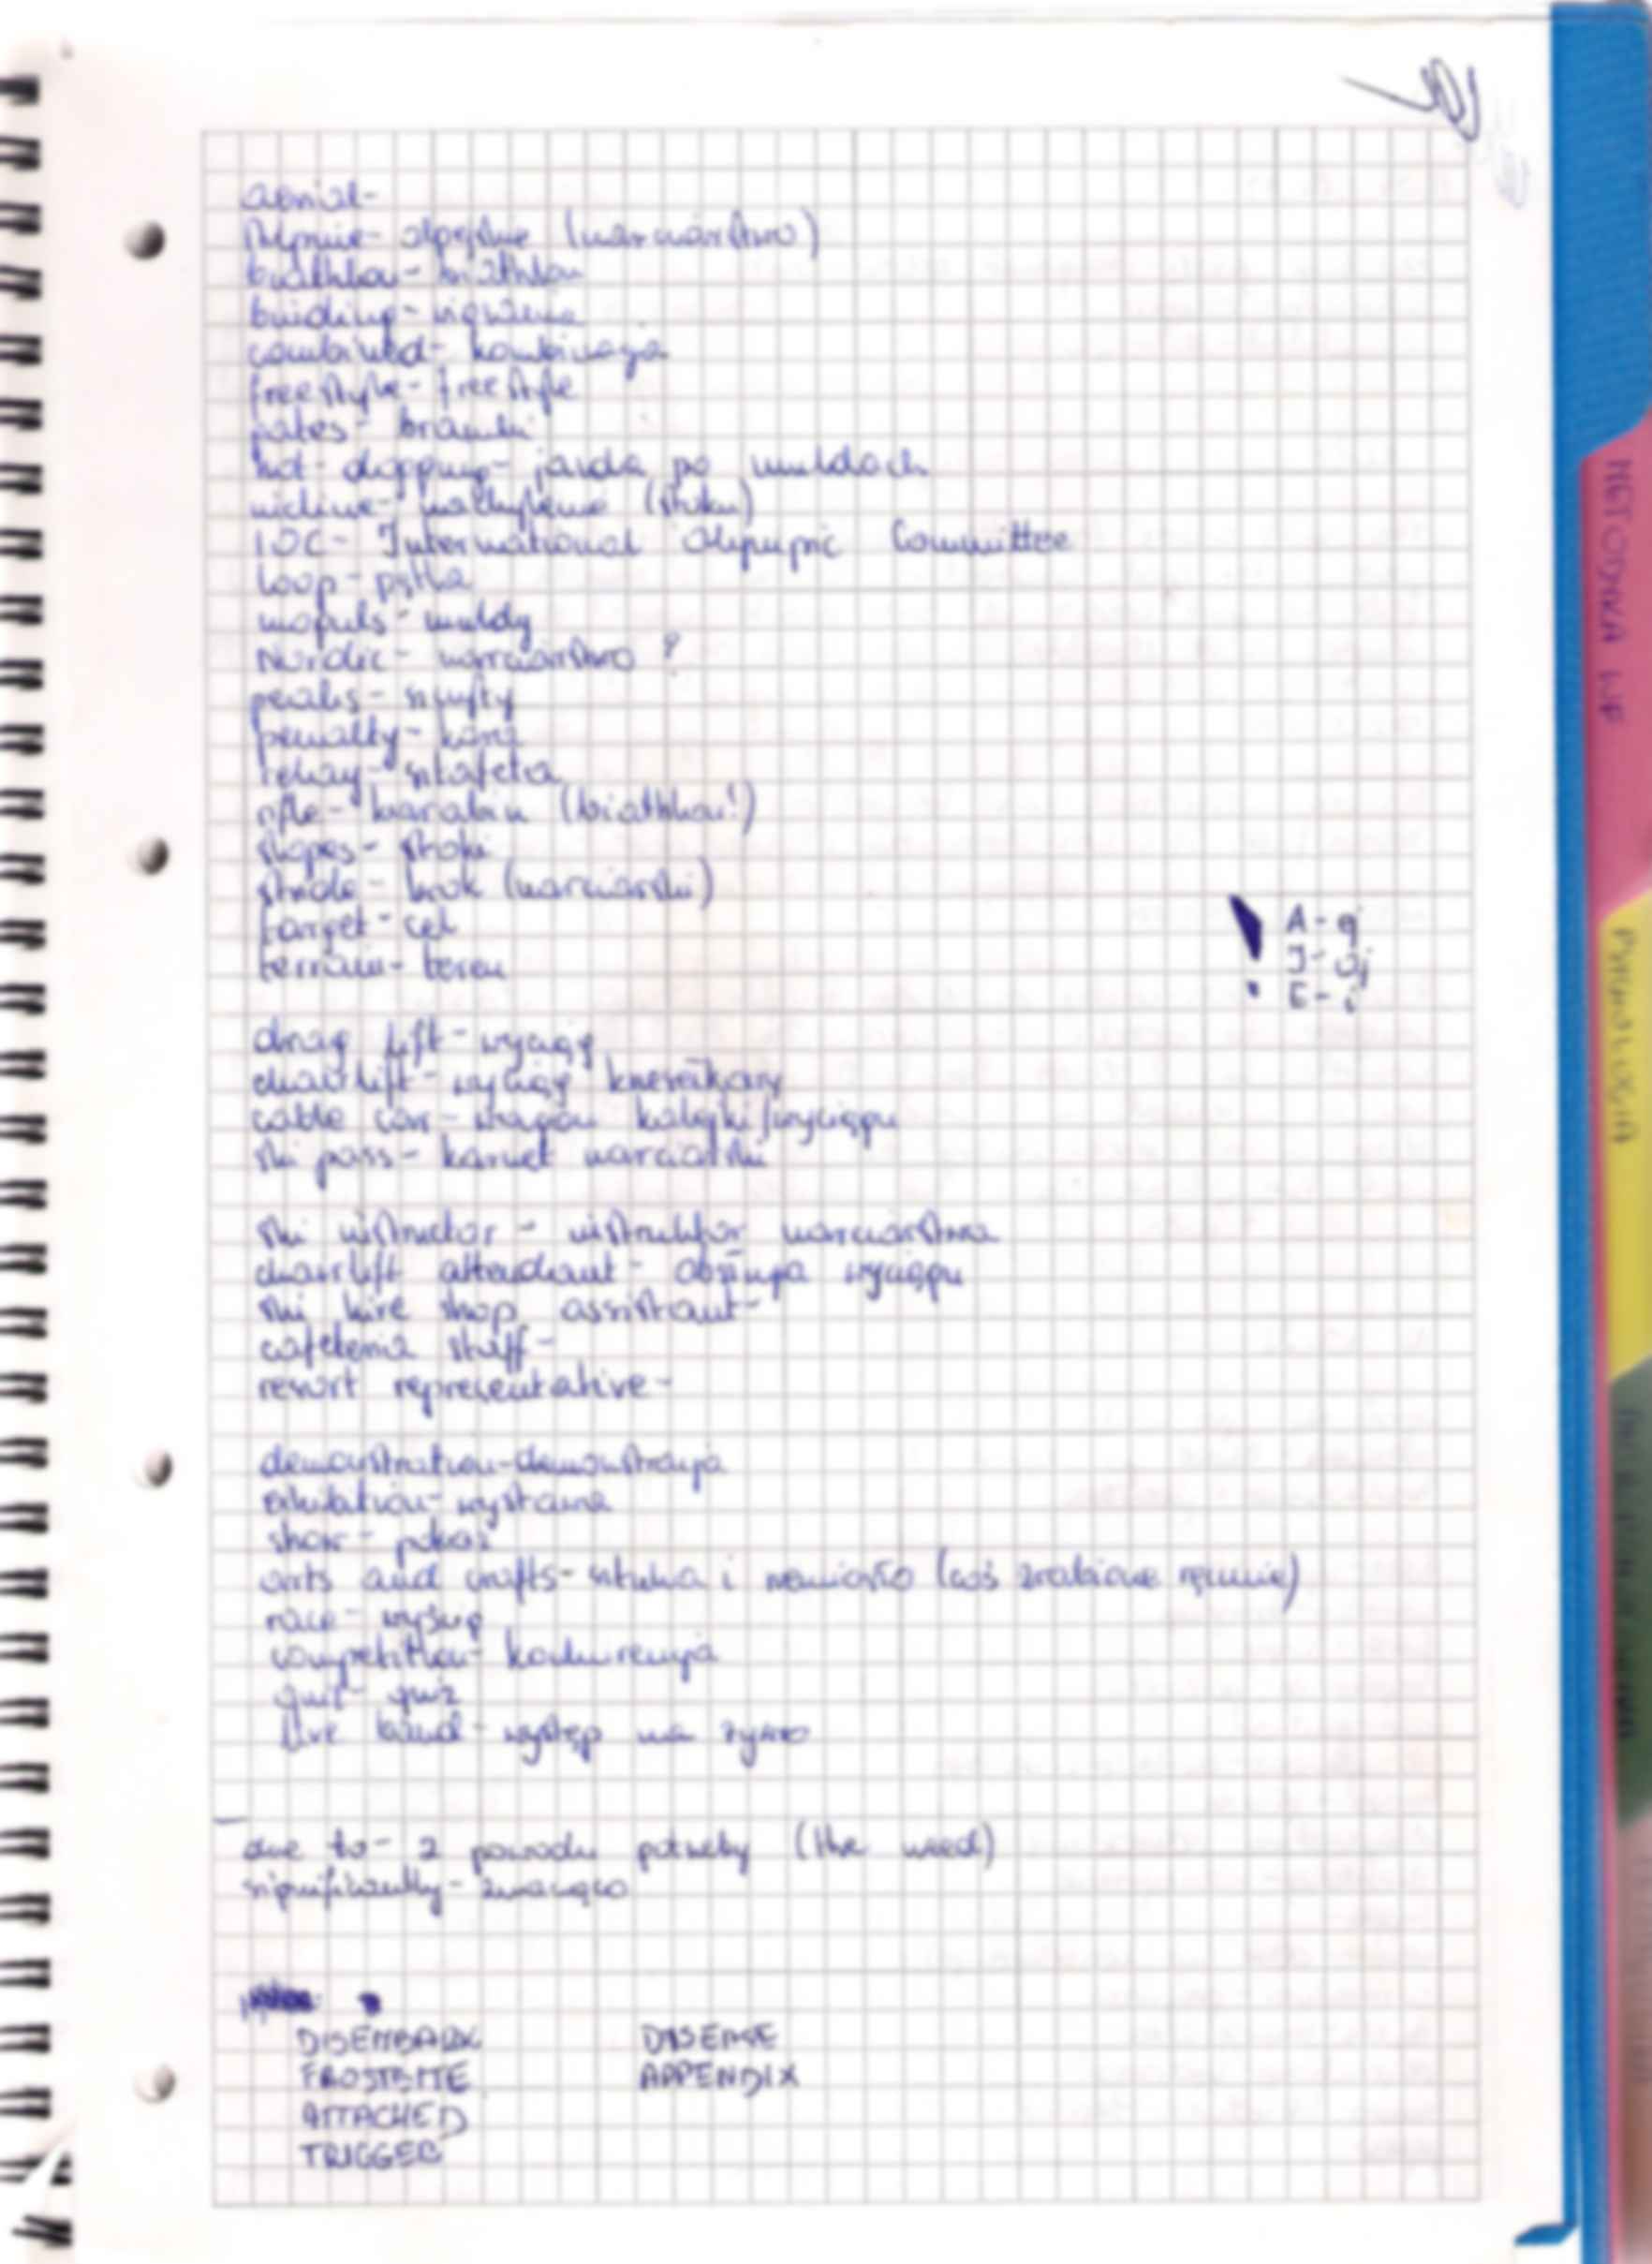 aerial-
Alpine- alpejskie (narciarstwo)
biathlon- biathlon
binding- wiązania
combined- kombinacja
freestyle- freestyle
gates- bramki
hot-dogging- jazda po muldach
incline- nachylenie (stoku)
IOC- International Olympic Committee
loop- pętla
moguls- muldy
Nordic- narciarstwo ?
peaks- szczyty
penalty- kara
relay- sztafeta
rifle- karabin (biathlon!)
slopes- stoki
stride- krok (narciarski)
target- cel
terrain- teren
A- ej
J- dżej
E- i
drag lift- wyciąg
chairlift- wyciąg krzesełkowy
cable car- wagon kolejki/wyciągu
ski pass- karnet narciarski
ski instructor- instruktor narciarstwa
chairlift attendant- obsługa wyciągu
ski hire shop assistant-
cafeteria staff-
resort representative-
demonstration-demonstracja
exhibition- wystawa
show- pokaz
arts and crafts- sztuka i rzemiosło (coś zrobione ręcznie)
race- wyścig
competition- konkurencja
quiz- quiz
live band- występ na żywo
due to- z powodu potrzeby (the need)
significantly- znacząco
DISEMBARK DISEASE
FROSTBITE APPENDIX
ATTACHED
TRIGGER
METODYKA WF